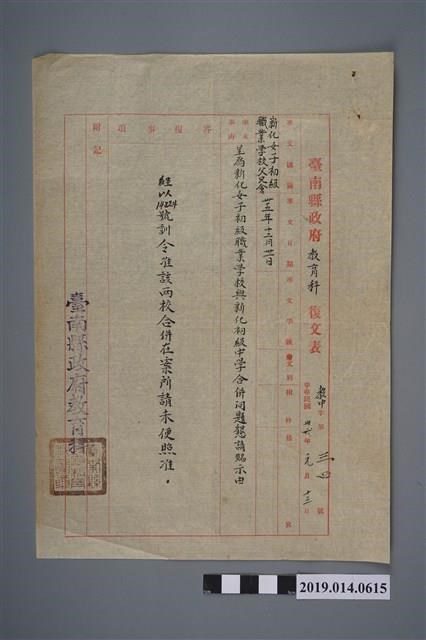 臺南縣政府教育科復文表
教中字第三四號
中華民國卅六年元月十三日
來文機關
來文日期
來文字號
來文別
附件
新化女子初級
職業學校父兄會
卅五年十二月廿一日
來文事由
呈為新化女子初級職業學校與新化初級中學合併問題懇請賜示由
答復事項
經以
14224
號訓令准該兩校合併在案所請未便照准。
附記
臺南縣政府教育科
2019.014.0615